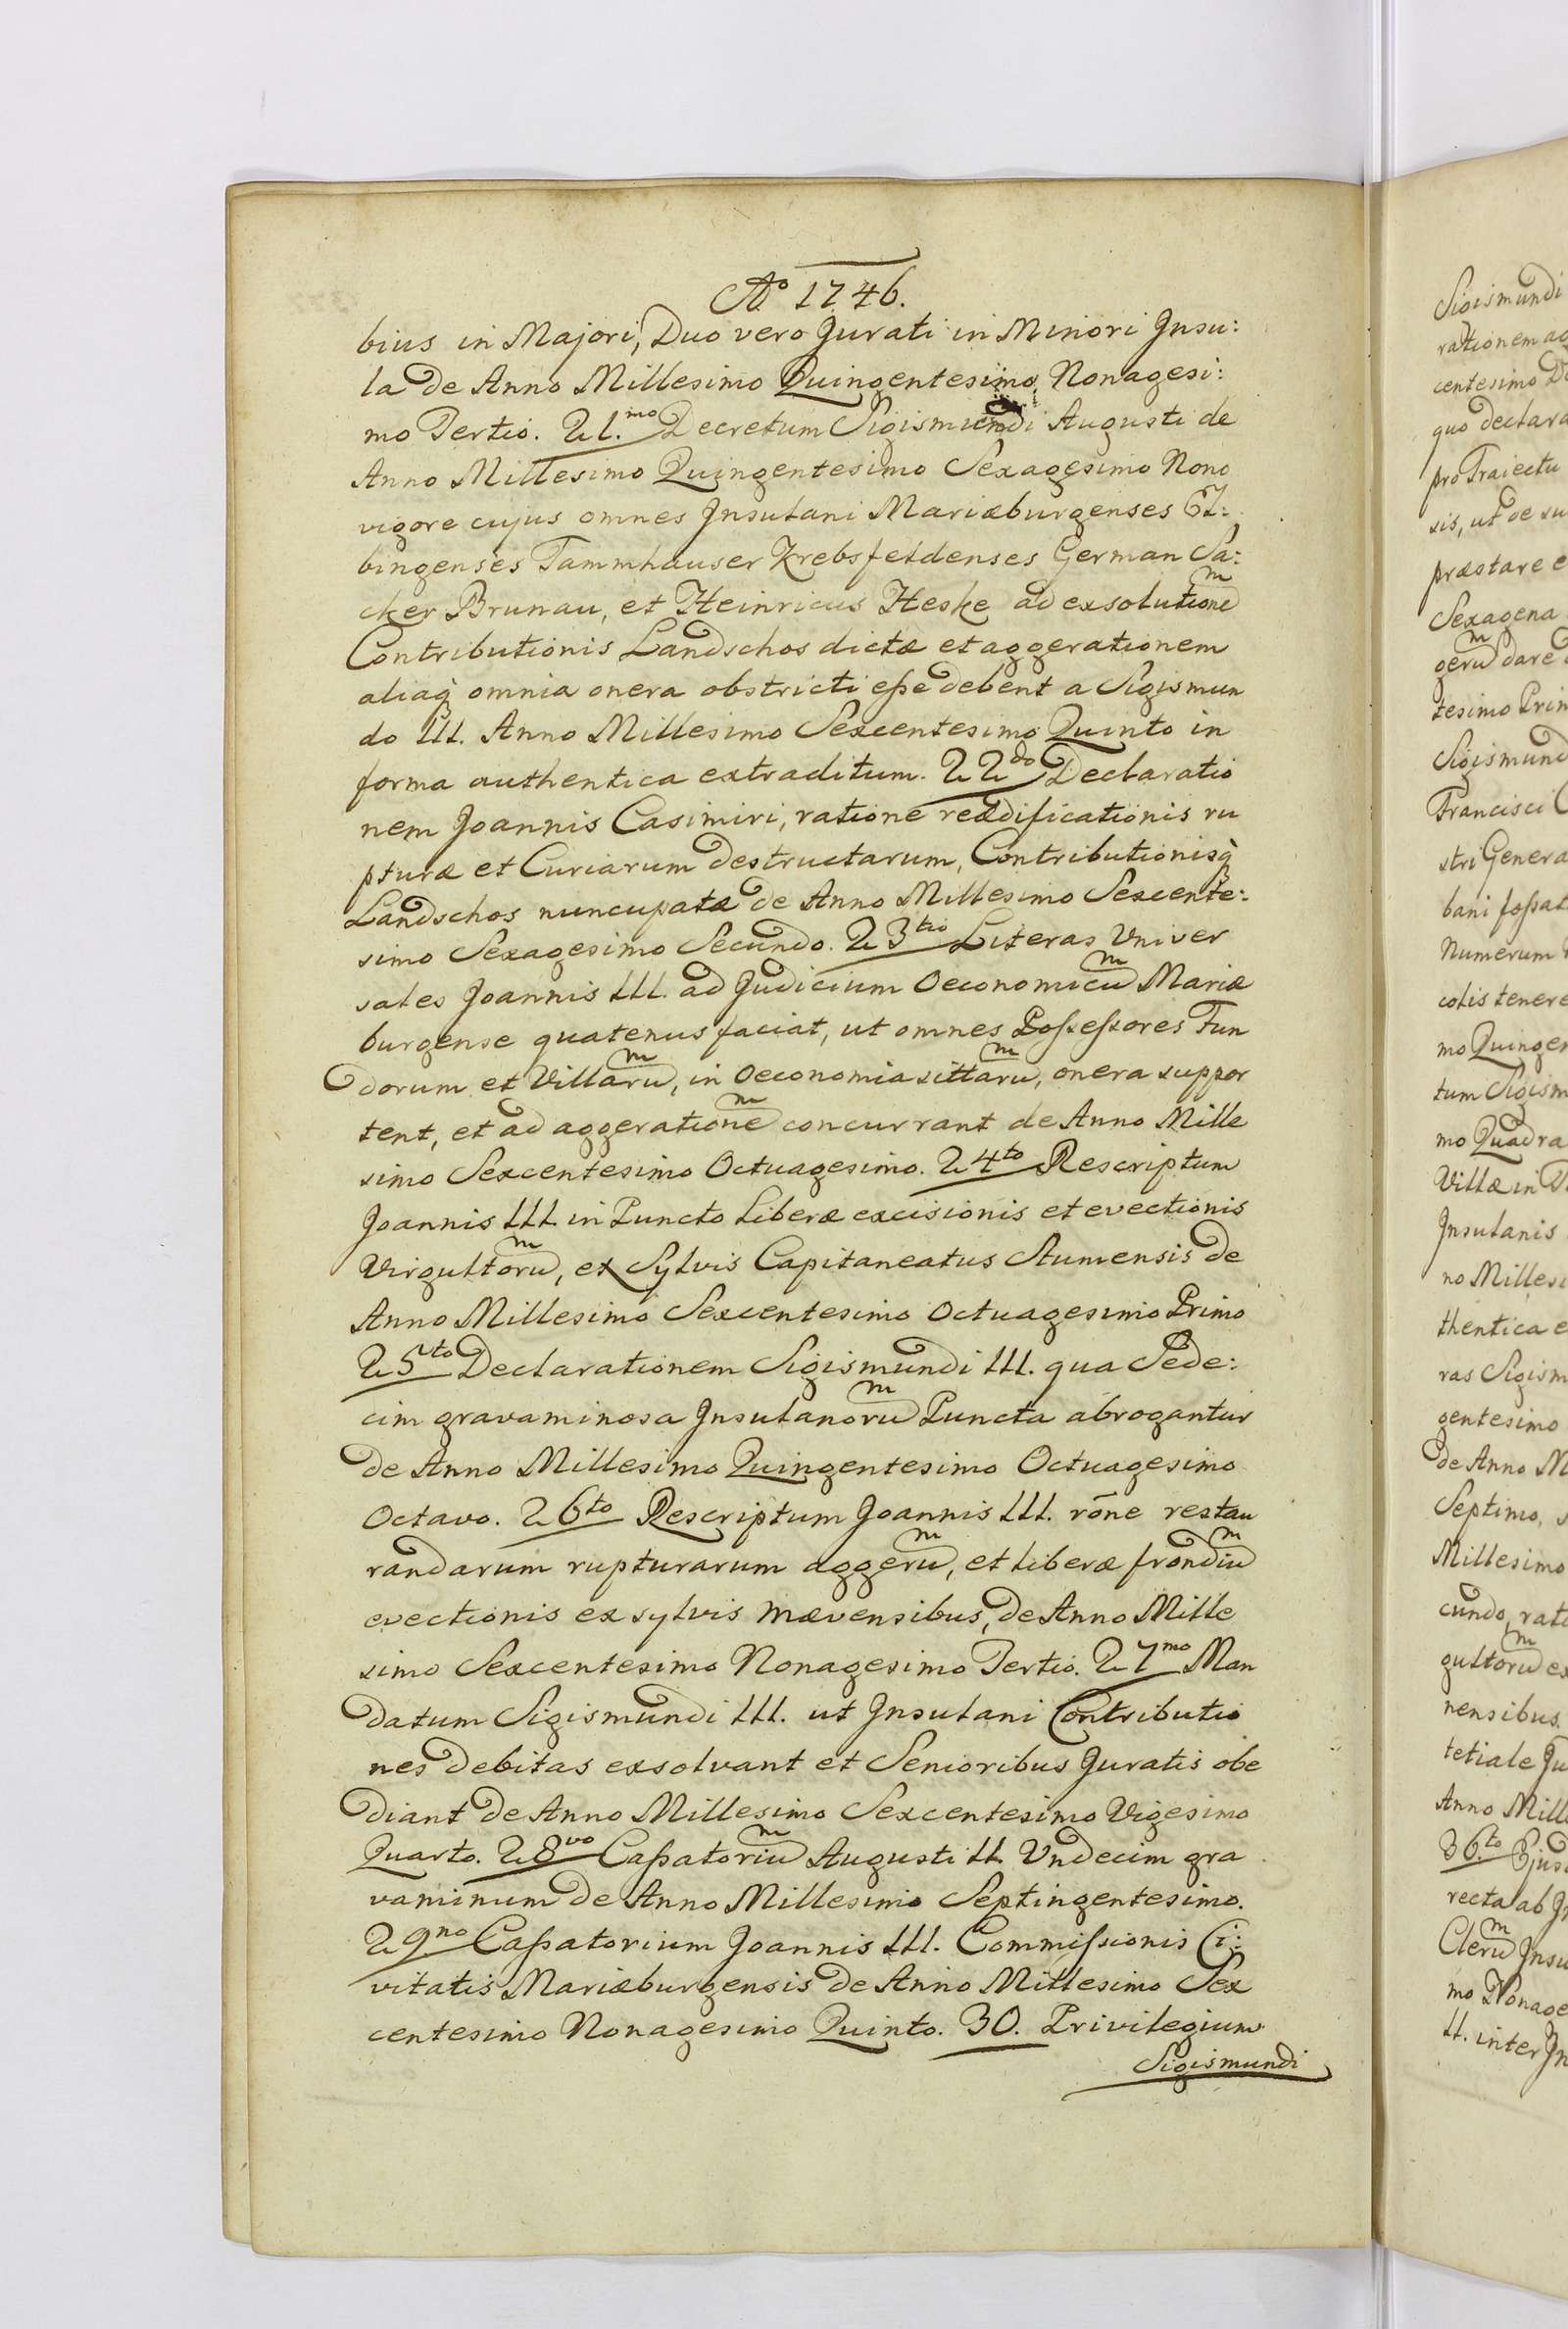 Ao 1746.
bius in Majori, Duo vero Jurati in Minori Insu:
la de Anno Millesimo Quingentesimo Nonagesi:
mo Tertio. 21.mo Decretum Sigismundi Augusti de
Anno Millesimo Quingentesimo Sexagesimo Nono
vigore cujus omnes Insulani Mariæburgenses El:
bingenses Tammhauser Krebsfeldenses German Sa:
cker Brunau, et Heinricus Heske ad exsolutionem
Contributionis Landschos dictæ et aggerationem
aliaq omnia onera obstricti eße debent a Sigismun
do III. Anno Millesimo Sexcentesimo Quinto in
forma authentica extraditum. 22do Declaratio
nem Joannis Casimiri, ratione reædificationis ru
pturæ et Curiarum destructarum, Contributionisq
Landschos nuncupatæ de Anno Millesimo Sexcente:
simo Sexagesimo Secundo. 23tio Literas Univer
sales Joannis III. ad Judicium Oeconomicum Mariæ
burgense quatenus faciat, ut omnes Poßeßores Fun
dorum et Villarum, in Oeconomia sittarum, onera suppor
tent, et ad aggerationem concurrant de Anno Mille
simo Sexcentesimo Octuagesimo. 24to Rescriptum
Joannis III. in Puncto liberæ excisionis et evectionis
Virgultorum, ex Sylvis Capitaneatus Stumensis de
Anno Millesimo Sexcentesimo Octuagesimo Primo
25to Declarationem Sigismundi III. qua Sede:
cim gravaminosa Insulanorum Puncta abrogantur
de Anno Millesimo Quingentesimo Octuagesimo
Octavo. 26to Rescriptum Joannis III. rõne restau
randarum rupturarum aggerum, et liberæ frondium
evectionis ex sylvis Mævensibus, de Anno Mille
simo Sexcentesimo Nonagesimo Tertio. 27mo Man
datum Sigismundi III. ut Insulani Contributio
nes debitas exsolvant et Senioribus Juratis obe
diant de Anno Millesimo Sexcentesimo Vigesimo
Quarto. 28vo Caßatorium Augusti II. Undecim gra
vaminum de Anno Millesimo Septingentesimo.
29no Caßatorium Joannis III. Commißionis Ci:
vitatis Mariæburgensis de Anno Millesimo Sex
centesimo Nonagesimo Quinto. 30. Privilegium
Sigismundi
Sigismundi
rationem
centesimo
quo
pro Traiectu
sis, ut de
præstare
Sexagena
gerum dare
tesimo
Sigismund
Francisci
stri Genera
bani foßat
Numerum
colis tenere
mo Quingen
tum Sigism
mo Quadra
Villæ in
Insulanis
no Millesi
thentica e
ras Sigism
gentesimo
de Anno M
Septimo,
Millesimo
cundo, rati
gultorum ex
nensibus.
tetiale Ju
Anno Mille
36.to Ejus
recta ab In
Clerum Insu
mo Nonage
II. inter In